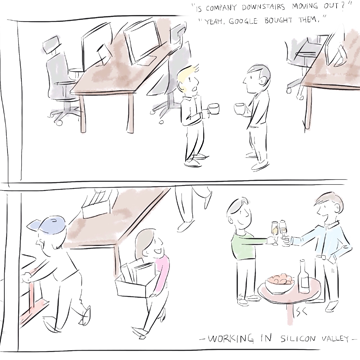 "IS COMPANY DOWNSTAIRS MOVING OUT?"
"YEAH. GOOGLE BOUGHT THEM."
SC
- WORKING IN SILICON VALLEY -